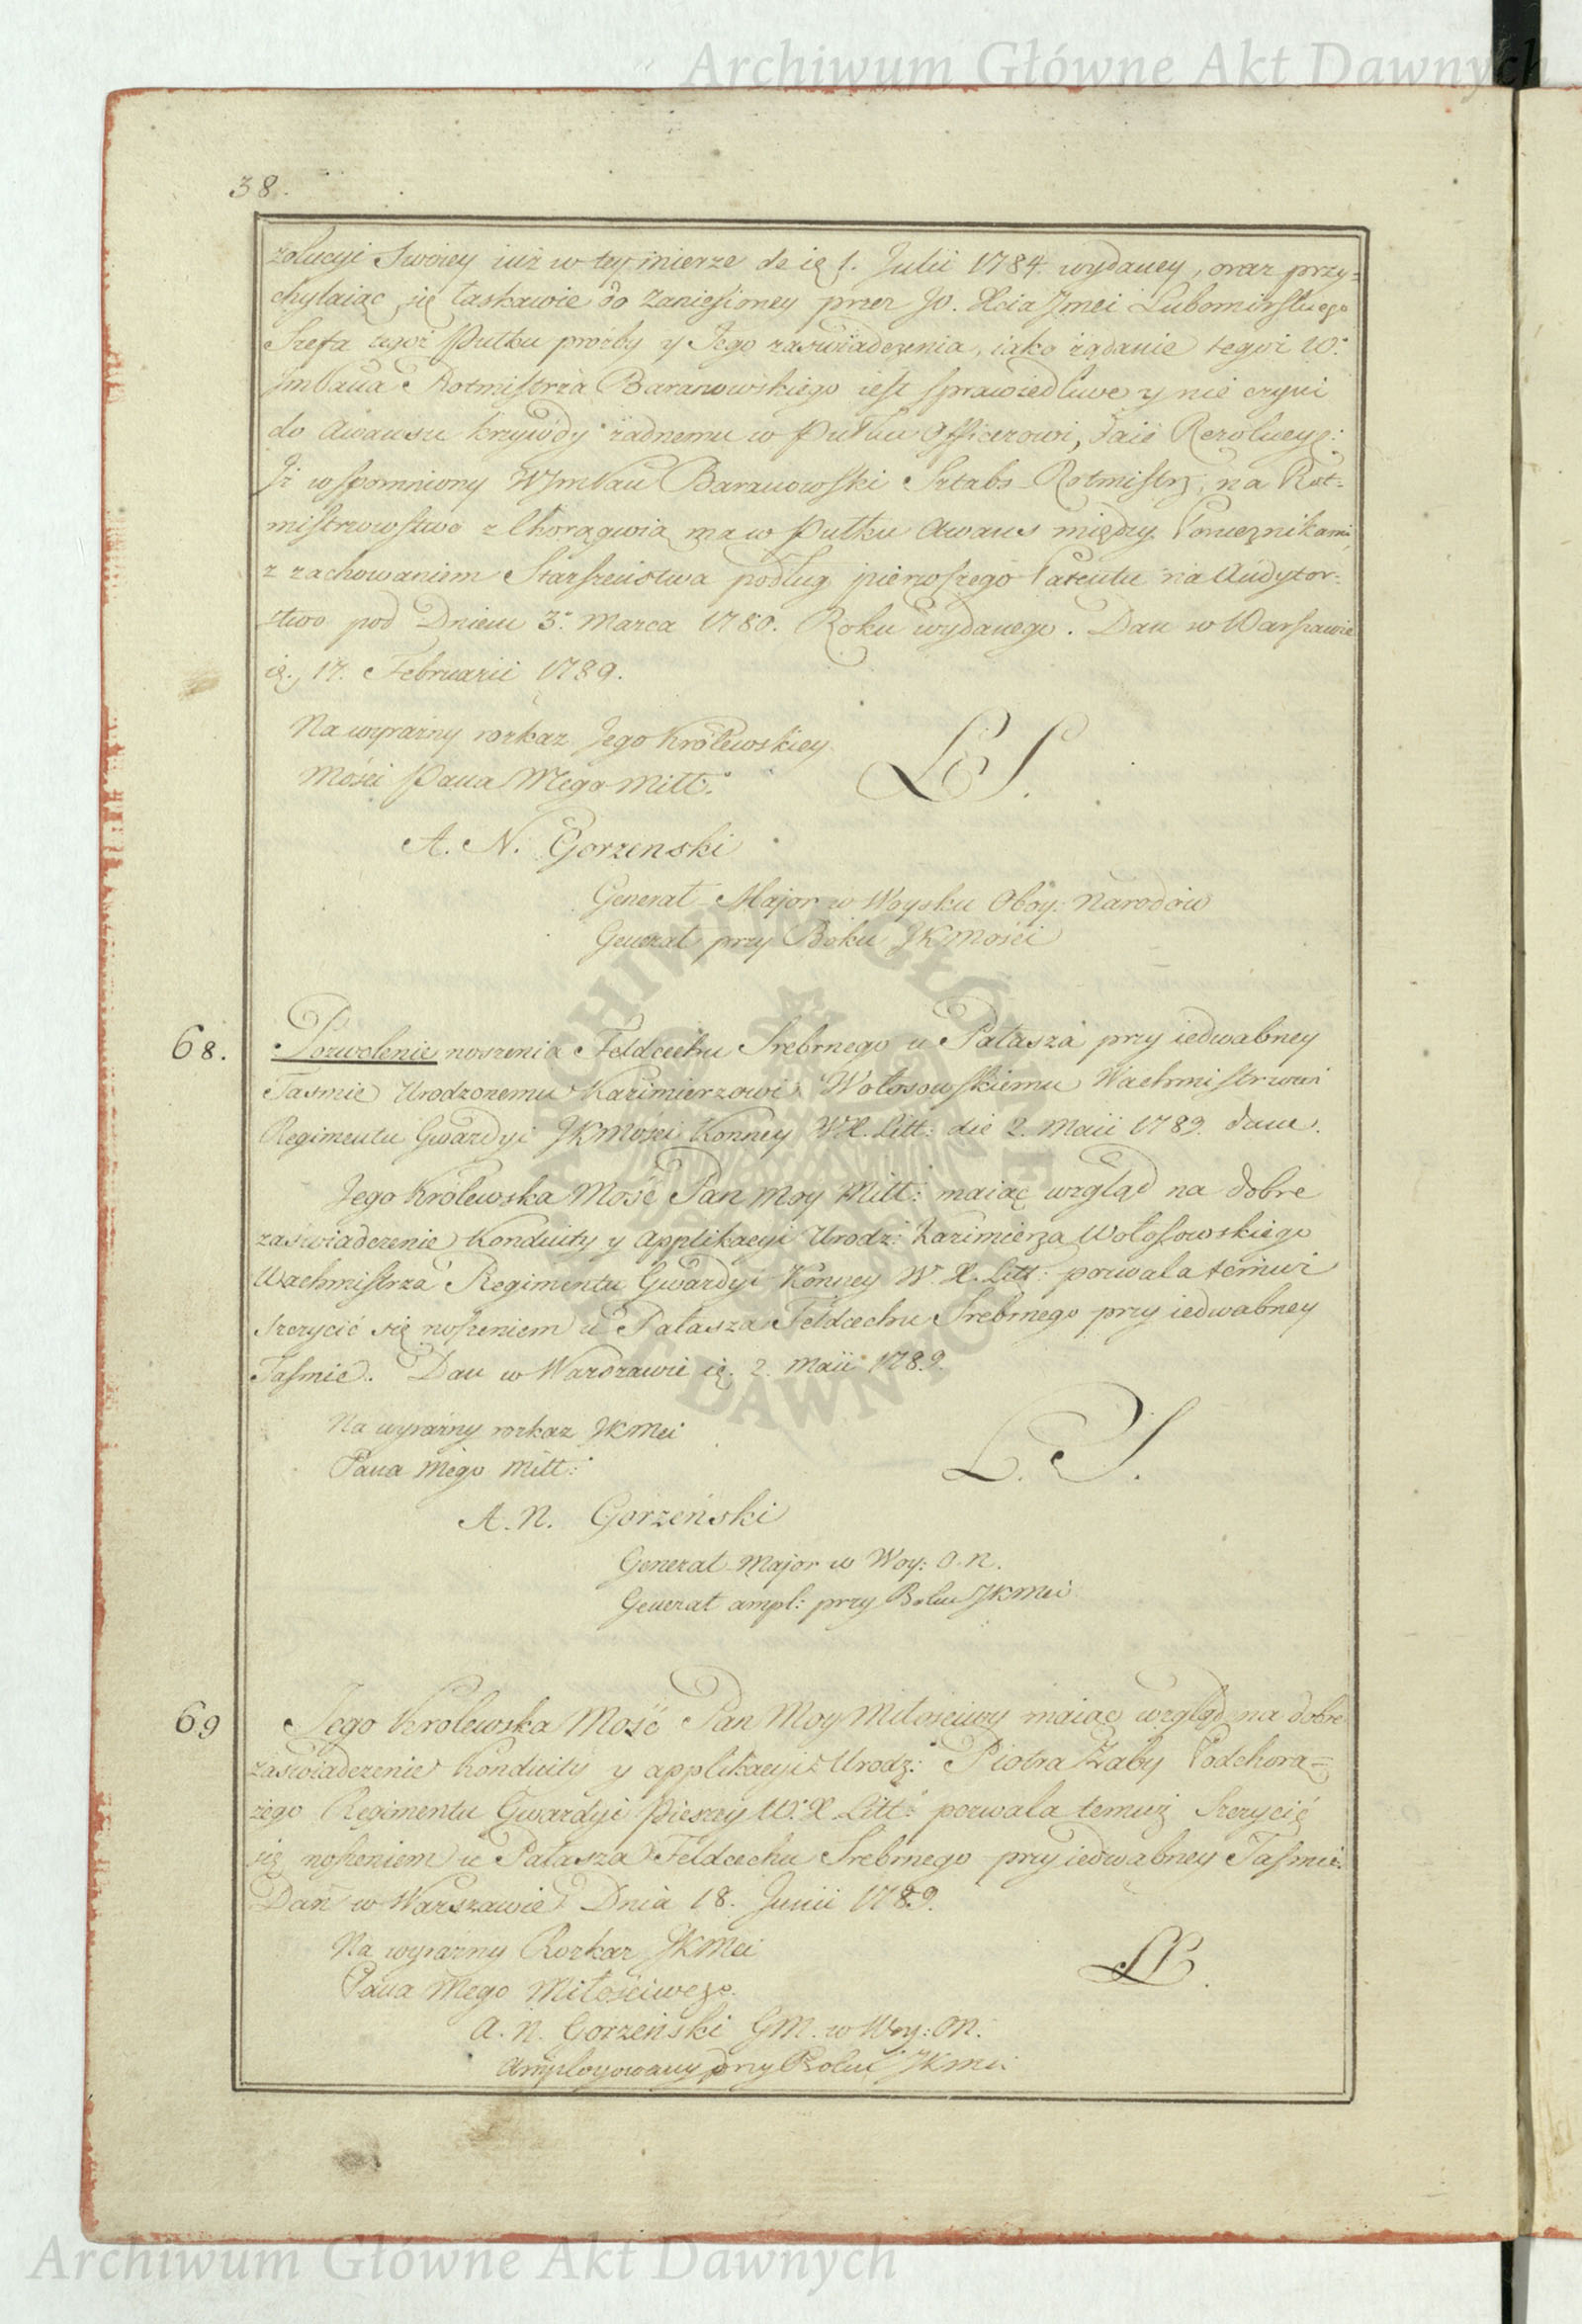 Archiwum Główne Akt Dawnych
38.
zolucyi Swoiey iuż w tey mierze de ię 1. Julii 1784. wydaney, oraz przy=
chylaiąc się łaskawie do zaniesioney przez JO. Xcia Jmci Lubomirskiego
Szefa tegoż Pułku proźby y Jego zaświadczenia, iako żądanie tegoż W:
JmPana Rotmistrza Baranowskiego iest sprawiedliwe y nie czyni
do Awansu krzywdy żadnemu w Pułku Officerowi, daie Rezolucyę:
Iż wspomniony WJmPan Baranowski Sztabs-Rotmistrz, na Rot=
mistrzowstwo z Chorągwią ma w Pułku Awans między Porucznikami
z zachowaniem Starszeństwa podług pierwszego Patentu na Audytor=
stwo pod Dniem 3: Marca 1780. Roku wydanego. Dan w Warszawie
ię. 17. Februarii 1789.
Na wyraźny rozkaz Jego Królewskiey
Mości Pana Mego Miłł:
LS.
A. N. Gorzenski
Generał-Major w Woysku Oboy: Narodów
Generał przy Boku JKMości
68.
Pozwolenie noszenia Feldcechu Srebrnego u Pałasza przy iedwabney
Taśmie Urodzonemu Kazimierzowi Wołosowskiemu Wachmistrzowi
Regimentu Gwardyi JKMości Konney W.X. Litt: die 2. Maii 1789. dane.
Jego Królewska Mość Pan Moy Miłł: maiąc wzgląd na dobre
zaświadczenie Konduity y Applikacyi Urodz: Kazimierza Wołosowskiego
Wachmistrza Regimentu Gwardyi Konney W. X. Litt: pozwala temuż
szczycić się noszeniem u Pałasza Feldcechu Srebrnego przy iedwabney
Taśmie. Dan w Warszawie ię. 2. Maii 1789.
Na wyraźny rozkaz JKMci
Pana Mego Miłł:
L. S.
A. N. Gorzeński
Generał-Major w Woy: O. N.
Generał ampl: przy Boku JKMci
69
Jego Krolewska Mość Pan Moy Miłościwy maiąc wzgląd na dobre
zaświadczenie Konduity y applikacyi Urodz: Piotra Żaby Podchorą=
żego Regimentu Gwardyi Pieszey W. X Litt: pozwala temuż szczycić
się noszeniem u Pałasza Feldcechu Srebrnego przy iedwabney Taśmie.
Dan w Warszawie Dnia 18. Junii 1789.
Na wyraźny Rozkaz JKMci
Pana Mego Miłościwego.
A. N. Gorzeński GM. w Woy: ON.
Amployowany przy Boku JKmci
Archiwum Główne Akt Dawnych